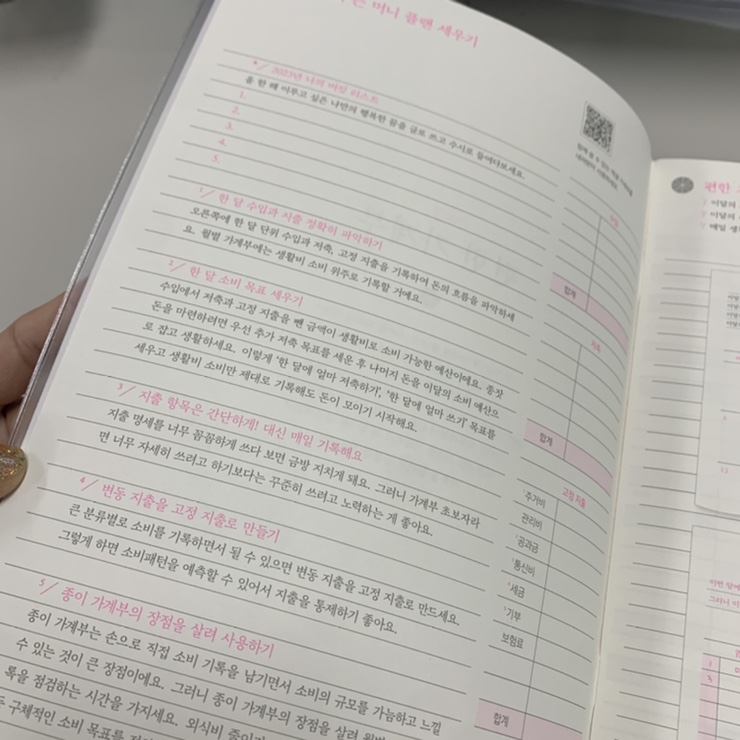 머니 플랜 세우기
*/ 2023년 나의 버킷 리스트
올 한 해 이루고 싶은 나만의 행복한 꿈을 글로 쓰고 수시로 들여다보세요.
1.
2.
3.
4.
5.
1/ 한 달 수입과 지출 정확히 파악하기
오른쪽에 한 달 단위 수입과 저축, 고정 지출을 기록하여 돈의 흐름을 파악하세
요. 월별 가계부에는 생활비 소비 위주로 기록할 거예요.
2/ 한 달 소비 목표 세우기
수입에서 저축과 고정 지출을 뺀 금액이 생활비로 소비 가능한 예산이에요. 종잣
돈을 마련하려면 우선 추가 저축 목표를 세운 후 나머지 돈을 이달의 소비 예산으
로 잡고 생활하세요. 이렇게 '한 달에 얼마 저축하기', '한 달에 얼마 쓰기' 목표를
세우고 생활비 소비만 제대로 기록해도 돈이 모이기 시작해요.
3/ 지출 항목은 간단하게! 대신 매일 기록해요
지출 명세를 너무 꼼꼼하게 쓰다 보면 금방 지치게 돼요. 그러니 가계부 초보자라
면 너무 자세히 쓰려고 하기보다는 꾸준히 쓰려고 노력하는 게 좋아요.
4/ 변동 지출을 고정 지출로 만들기
큰 분류별로 소비를 기록하면서 될 수 있으면 변동 지출을 고정 지출로 만드세요.
그렇게 하면 소비패턴을 예측할 수 있어서 지출을 통제하기 좋아요.
5/ 종이 가계부의 장점을 살려 사용하기
종이 가계부는 손으로 직접 소비 기록을 남기면서 소비의 규모를 가늠하고 느낄
수 있는 것이 큰 장점이에요. 그러니 종이 가계부의 장점을 살려
록을 점검하는 시간을 가지세요. 외식비 줄이
구체적인 소비 목표를
합계
합계
고정 지출
주거비
관리비
공과금
통신비
세금
기부
보험료
합계
편한
이달의
이달의
매일